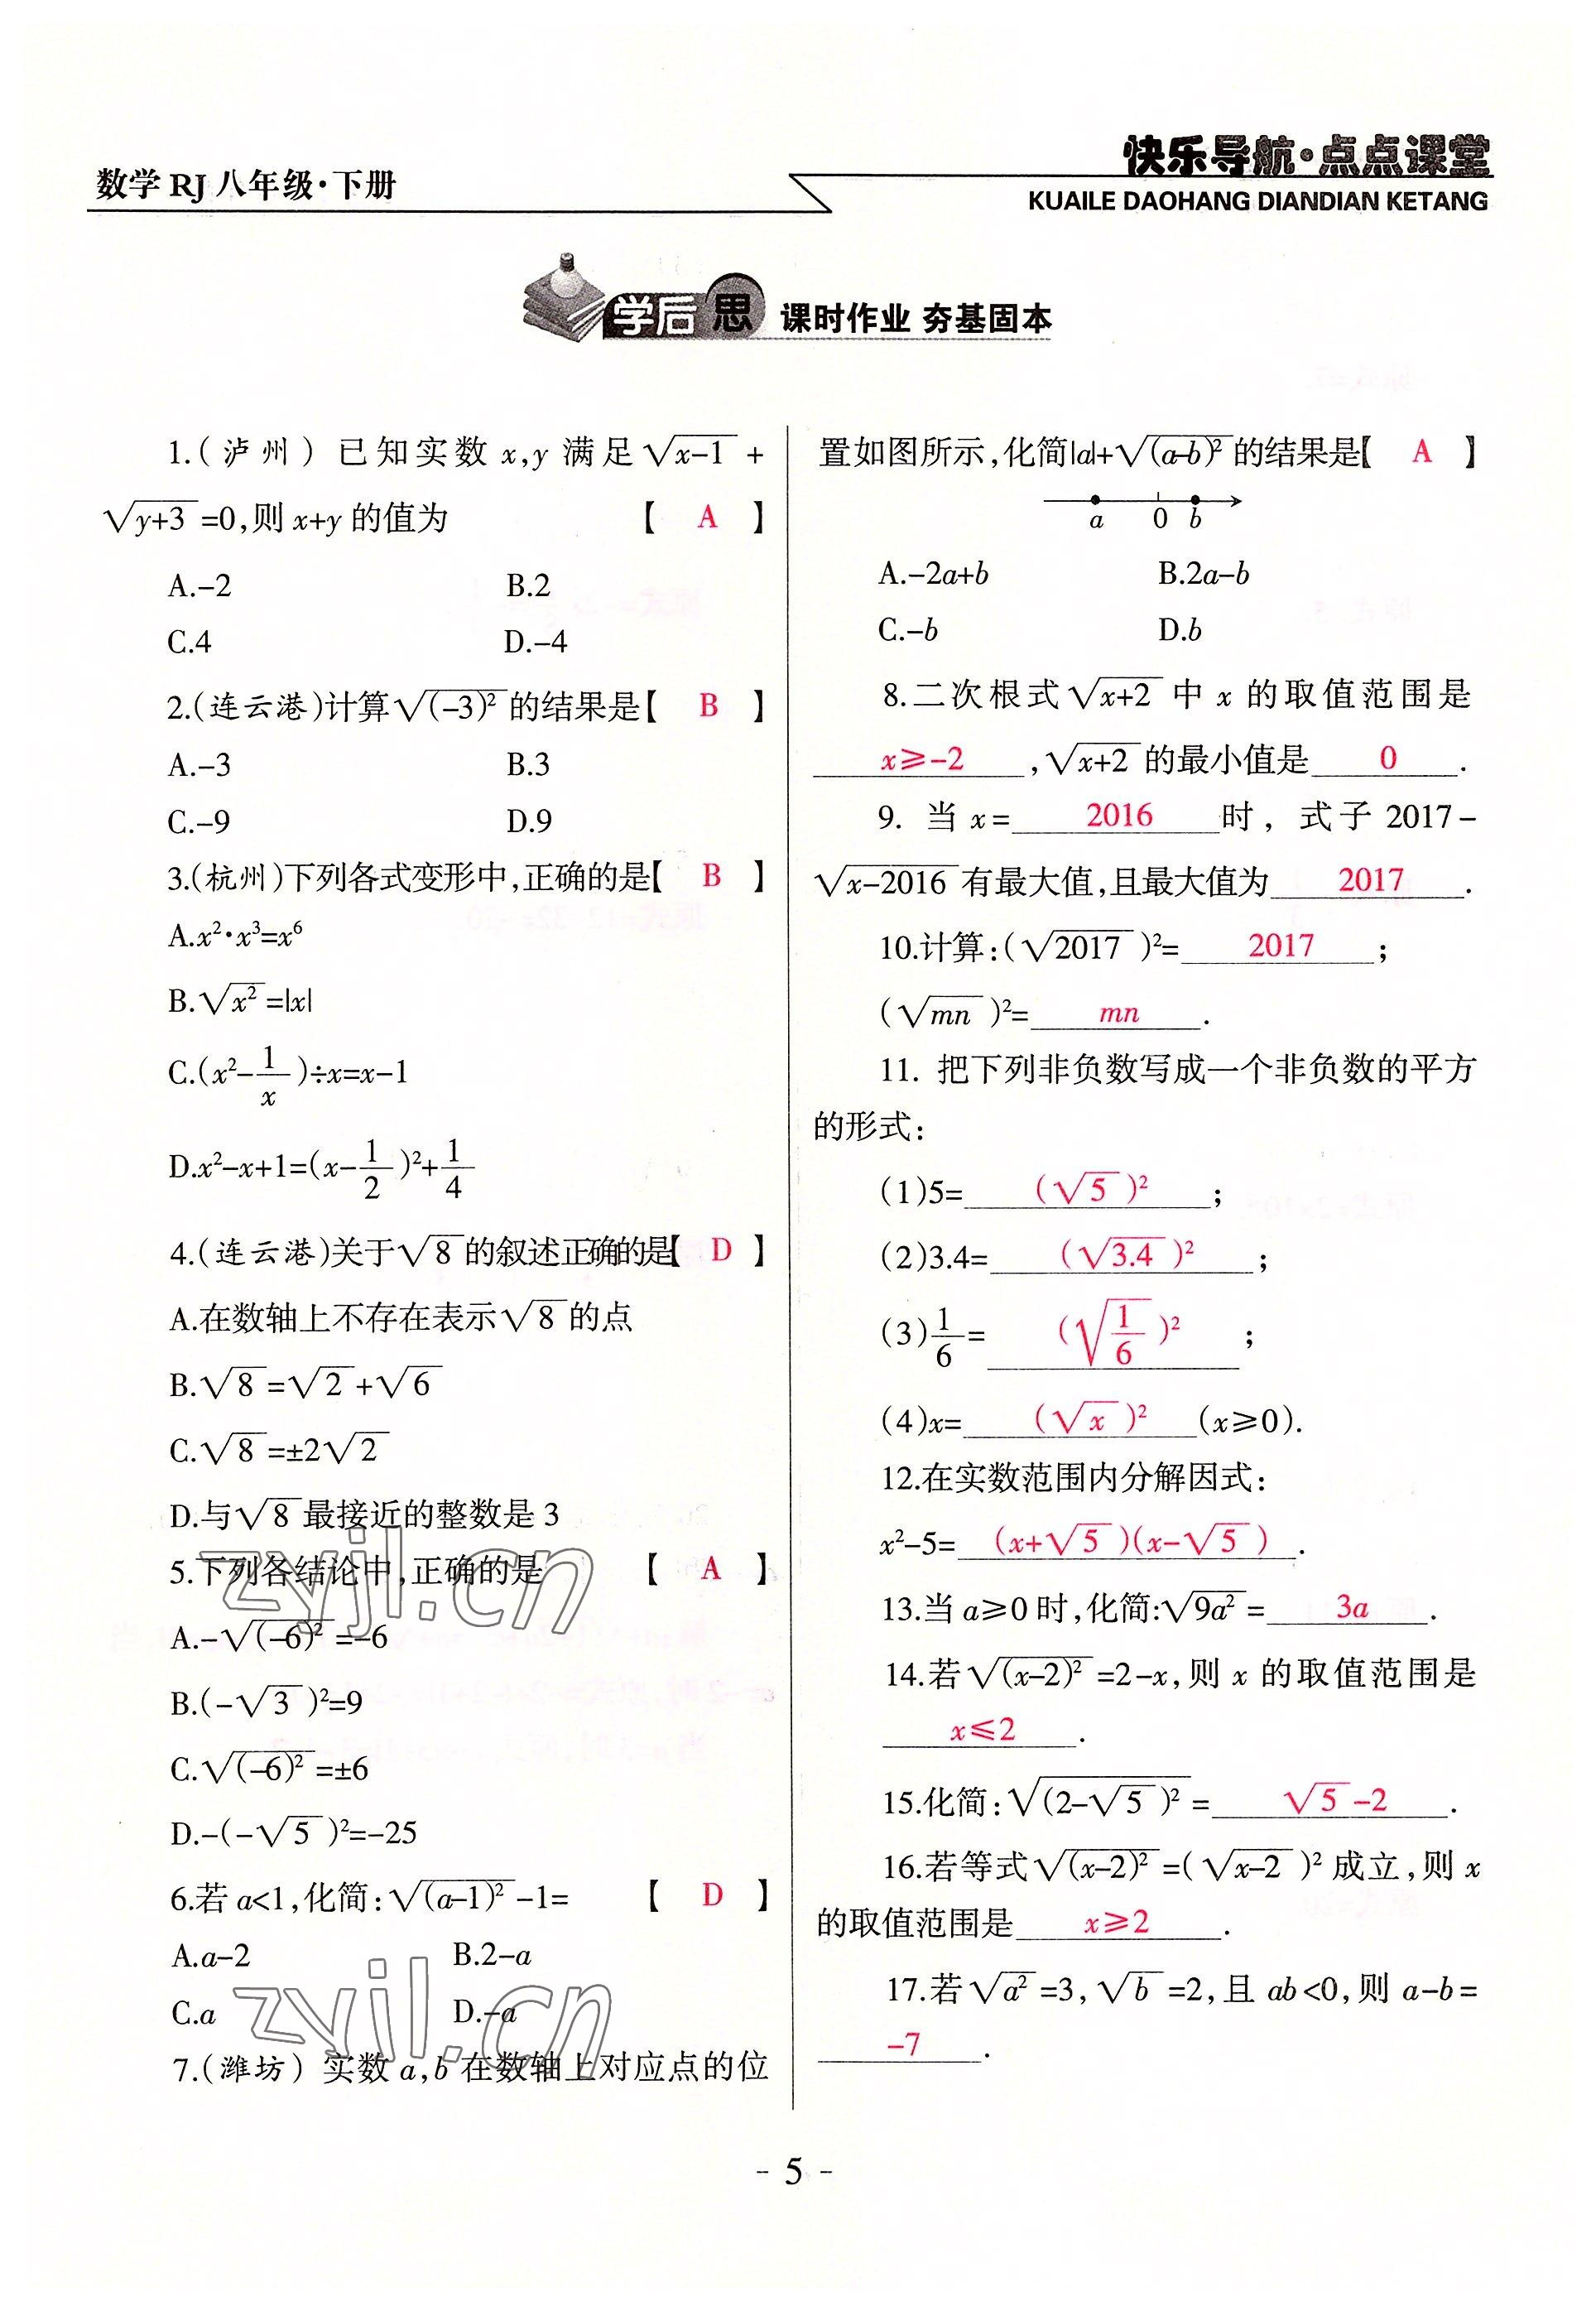 数学 RJ 八年级·下册
快乐导航·点点课堂
KUAILE DAOHANG DIANDIAN KETANG
学后思 课时作业 夯基固本
1.(泸州)已知实数 x,y 满足√(x-1)+
√(y+3)=0,则 x+y 的值为 【 A 】
A.-2 B.2
C.4 D.-4
2.(连云港)计算√((-3)²)的结果是【 B 】
A.-3 B.3
C.-9 D.9
3.(杭州)下列各式变形中,正确的是【 B 】
A.x²·x³=x⁶
B.√(x²)=|x|
C.(x²-1/x)÷x=x-1
D.x²-x+1=(x-1/2)²+1/4
4.(连云港)关于√8的叙述正确的是【 D 】
A.在数轴上不存在表示√8的点
B.√8=√2+√6
C.√8=±2√2
D.与√8最接近的整数是 3
5.下列各结论中,正确的是 【 A 】
A.-√((-6)²)=-6
B.(-√3)²=9
C.√((-6)²)=±6
D.-(-√5)²=-25
6.若 a<1,化简:√((a-1)²)-1= 【 D 】
A.a-2 B.2-a
C.a D.-a
7.(潍坊)实数 a,b 在数轴上对应点的位
置如图所示,化简|a|+√((a-b)²)的结果是【 A 】
a 0 b
A.-2a+b B.2a-b
C.-b D.b
8.二次根式√(x+2)中 x 的取值范围是
x≥-2,√(x+2)的最小值是 0 .
9. 当 x= 2016 时, 式子 2017-
√(x-2016)有最大值,且最大值为 2017 .
10.计算:(√2017)²= 2017 ;
(√(mn))²= mn .
11. 把下列非负数写成一个非负数的平方
的形式:
(1)5= (√5)² ;
(2)3.4= (√3.4)² ;
(3)1/6= (√(1/6))² ;
(4)x= (√x)² (x≥0).
12.在实数范围内分解因式:
x²-5= (x+√5)(x-√5) .
13.当 a≥0 时,化简:√(9a²)= 3a .
14.若√((x-2)²)=2-x,则 x 的取值范围是
x≤2 .
15.化简:√((2-√5)²)= √5-2 .
16.若等式√((x-2)²)=(√(x-2))²成立,则 x
的取值范围是 x≥2 .
17.若√(a²)=3,√b=2,且 ab<0,则 a-b=
-7 .
zyjl.cn
zyjl.cn
- 5 -